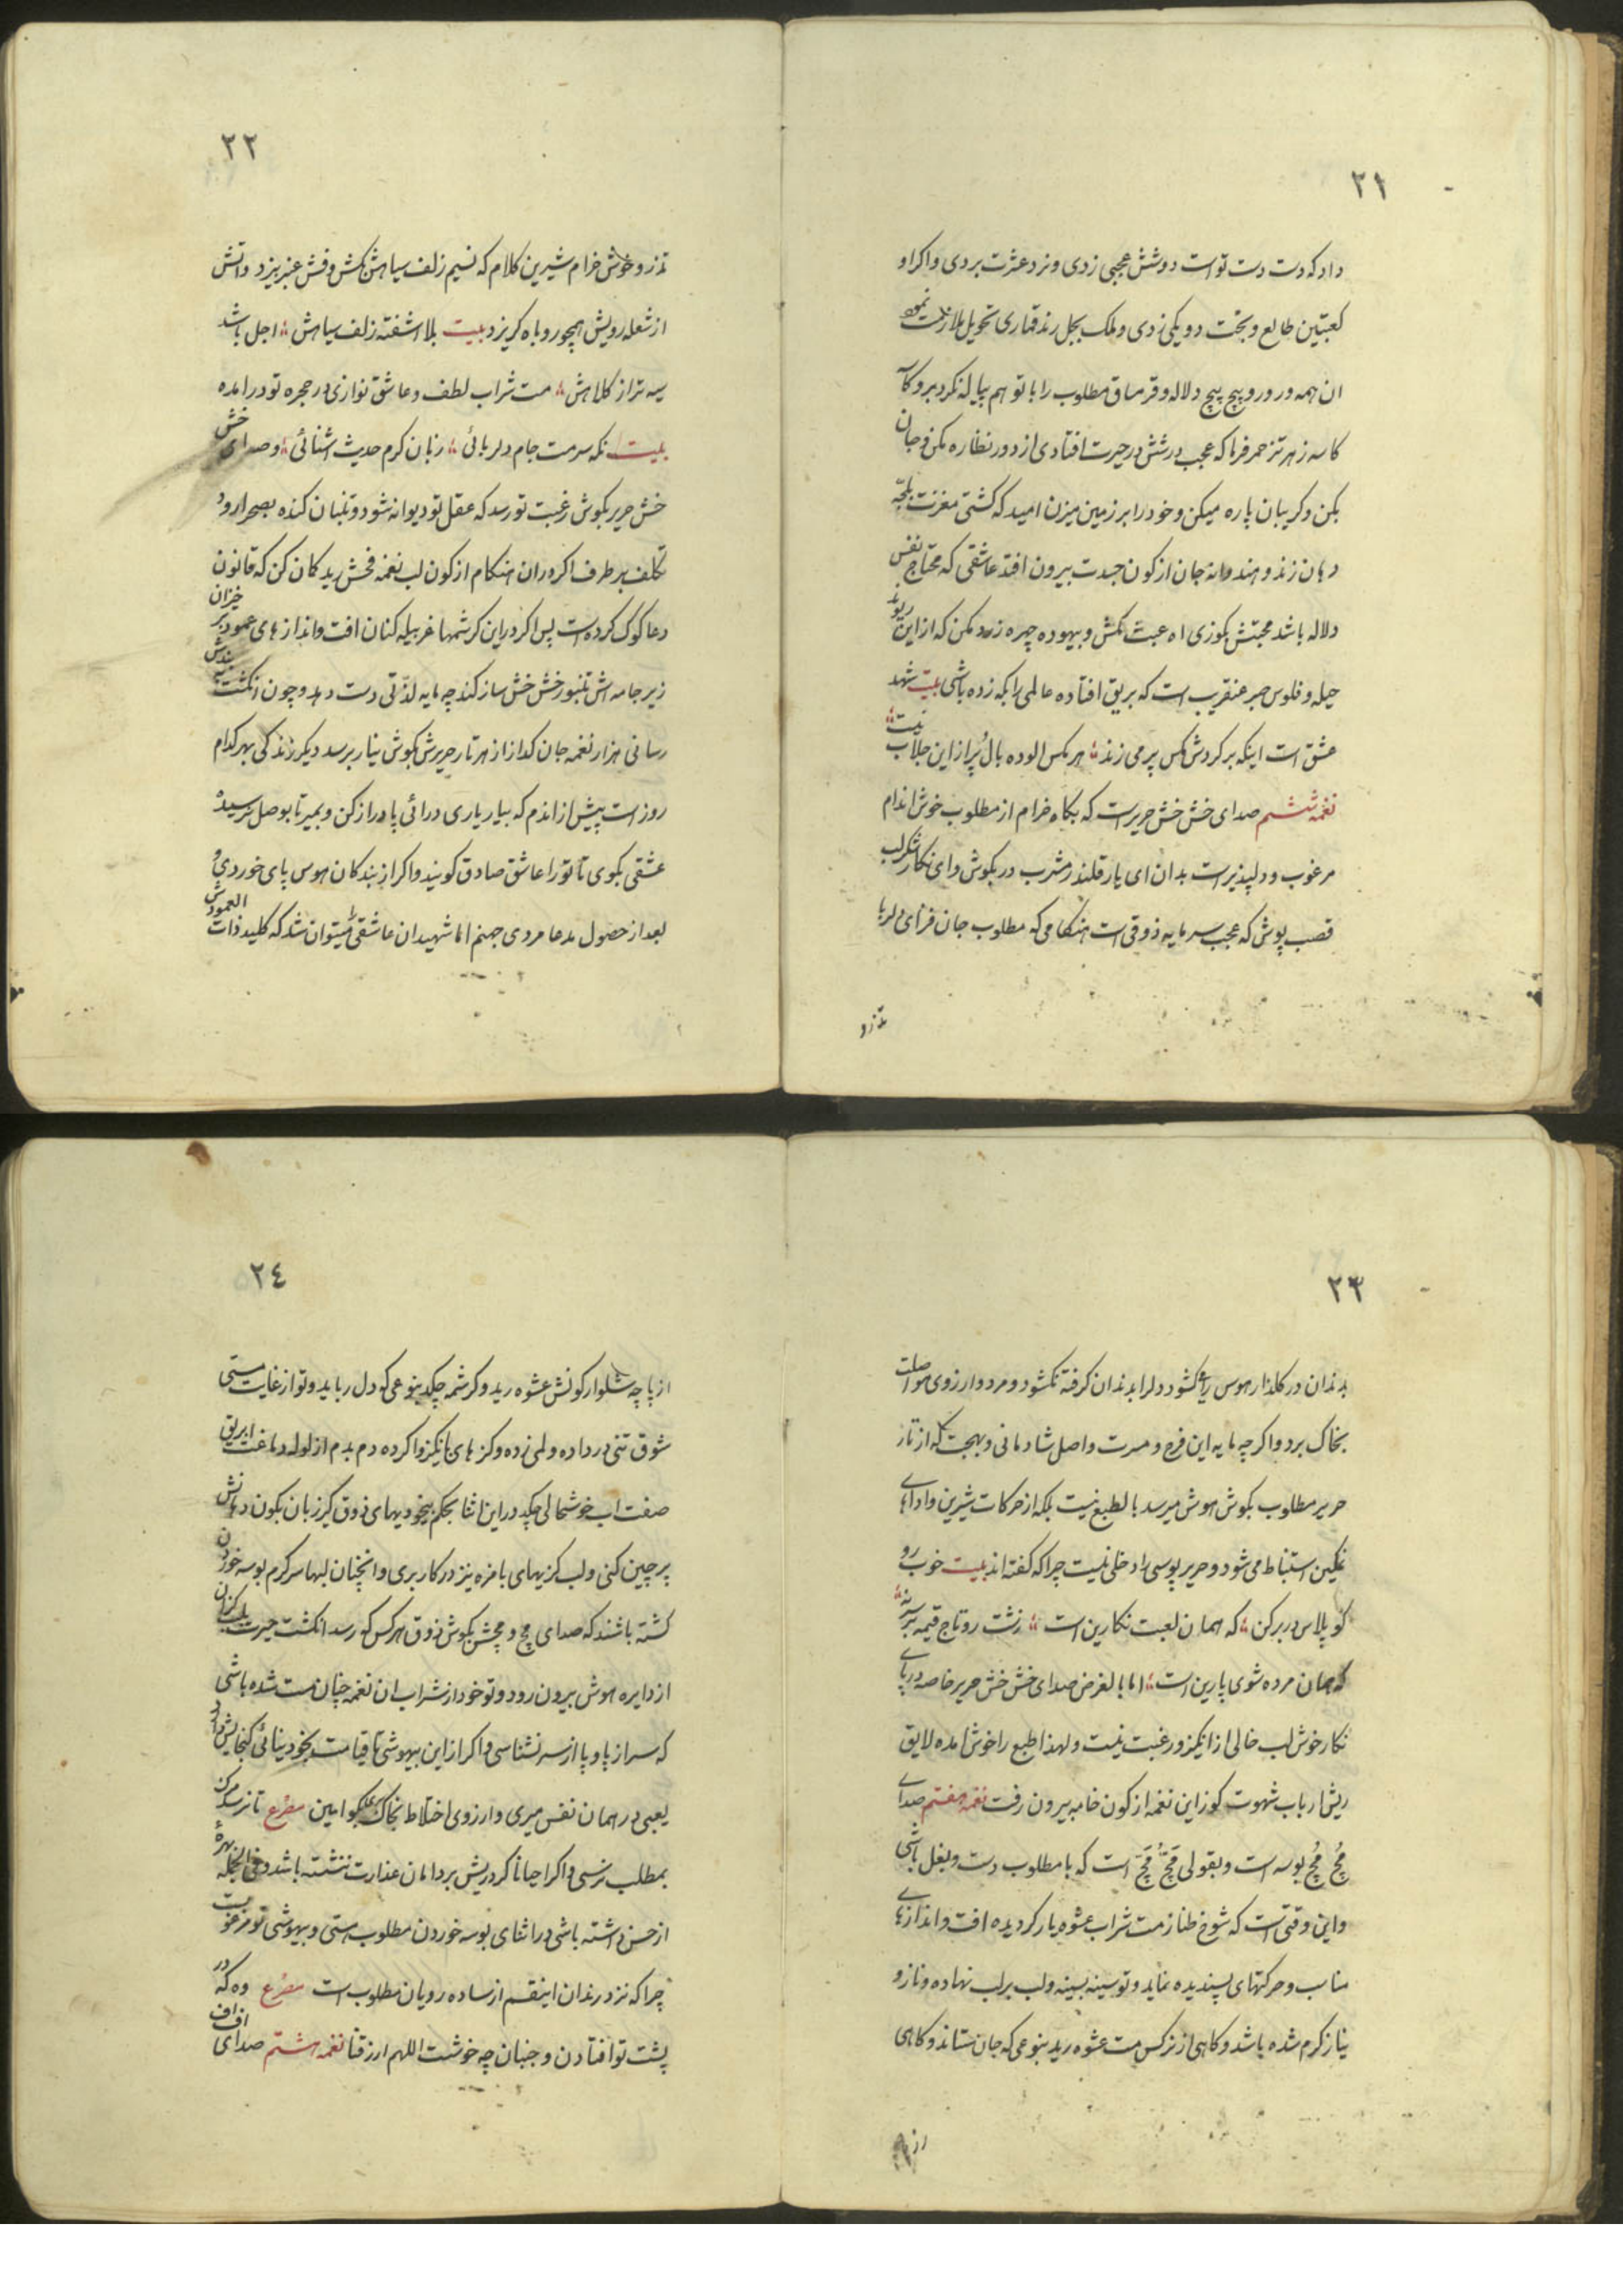 ٢١
داد که دست دست تو است دو شش عجبی زدی و نرد عشرت بردی و اکر او
کعبتین طالع و بخت دو یکی زدی و ملک بجل رند قماری تحویل ملازمت نموده
ان همه ور ور و پیچ پیچ دلاله و قرمساق مطلوب را با تو هم پیاله نکرد برو کآ
کاسه زهر تزحمر فرما که عجب در شش در حیرت افتادی از دور نظاره مکن و جان
بکن و کریبان پاره میکن و خود را بر زمین میزن امید که کشتی مغزت طپچه
دهان زند و هندوانه جان از کون جسدت بیرون افتد عاشقی که محتاج نفس
دلاله باشد محبتش بکوزی اه عبث مکش و بیهوده چهره زرد مکن که از این ریوند
حیله و فلوس صبر عنقریب است که بریق افتاده عالمی را بکه زده باشی بیت شهد
عشق است اینکه بر کردش مکس پر می زند ؛ هر مکس الوده بال پُر از این جلاب نیست ؛
نغمه ششم صدای خش خش حریر است که بکاه خرام از مطلوب خوش اندام
مرغوب و دلپذیر است بدان ای یار قلندر مشرب درد بکوش و ای نکار شکر لب
قصب پوش که عجب سرمایه ذوقی است هنکامی که مطلوب جان فزای دلربا
تذرو
٢٢
تذرو خوش خرام شیرین کلام که نسیم زلف سیاهش مکش و فش عنبر بیزد و اتش
از شعله رویش همچو روباه کریزد بیت بلا اشفته زلف سیاهش ؛ اجل باشد
سیه تر از کلاهش ؛ مست شراب لطف و عاشق نوازی در حجره تو درامده
بیت نکه سرمست جام دلربائی ؛ زبان کرم حدیث اشنائی ؛ و صدای خش
خش حریر بکوش رغبت تو رسد که عقل تو دیوانه شود و تنبان کنده بصحرا رود
تکلف بر طرف اکر دران هنکام از کون لب نغمه فحش رید کان کن که قانون
دعا کوک کرده است پس اکر دراین کرشمها غربیله کنان افت و اندازهای عمود بر خیزان
زیر جامه اش تنبور خش خش ساز کند چه مایه لذتی دست دهد و چون انکشت به بندش
رسانی هزار نغمه جان کداز از هر تار حریرش بکوش نیاز برسد دیکر زندکی بهر کدام
روز است پیش از اندم که بیار یاری درائی پا دراز کن و بمیر تا بوصل نرسیده
عشقی بکوی تا تو را عاشق صادق کویند و اکر از بندکان هوس پای خوردی و
بعد از حصول مدعا مردی جهنم اما شهیدان عاشقی نمیتوان شد که کلید ذات العمودش
٢٣
بدندان در کلذار هوس را کشود دلرا بدندان کرفته نکشود و مرد و ارزوی مواصلت
بخاک برد و اکر چه مایه این فرح و مسرت و اصل شادمانی و بهجت که از تار
حریر مطلوب بکوش هوش میرسد بالطبع نیست بلکه از حرکات شیرین و اداهای
نمکین استنباط می شود و حریر پوسی را دخلی نیست چرا که کفته اند بیت خوب رو
کو پلاس در بر کن ؛ که همان لعبت نکارین است ؛ زشت رو تاج قیمه بر سر نه ؛
که همان مرده شوی پارین است ؛ اما بالغرض صدای خش خش حریر خاصه در پای
نکار خوش لب خالی از انکیز و رغبت نیست و لهذا طبع را خوش امده لایق
ریش ارباب شهوت کوز این نغمه از کون خامه بیرون رفت نغمه هفتم صدای
مُچ مُچ بوسه است و بقولی قَچّ قَچّ است که با مطلوب دست و بغل باشی
و این وقتی است که شوخ طناز مست شراب عشوه یار کردیده افت و اندازهای
مناسب و حرکتهای پسندیده نماید و تو سینه بسینه و لب بر لب نهاده و ناز و
نیاز کرم شده باشد و کاهی از نرکس مست عشوه رید بنوعی که جان ستاند و کاهی
از پا
٢٤
از پاچه شلوار کونش عشوه رید و کرشمه چکد بنوعی که دل رباید و تو از غایت مستی
شوق تنی در داده و لمی زده و کزهای بانکیز وا کرده دم بدم از لوله دماغت ابریق
صفت اب خوشحالی چکید در این اثنا بحکم بیخودیهای ذوق کیر زبان بکون دهانش
پر چین کنی و لب کزیهای بامزه نیز در کار بری و انچنان لبها سر کرم بوسه خوردن
کشته باشند که صدای مچ و مچش بکوش ذوق هر کس که رسد انکشت حیرت بلب کزان
از دایره هوش بیرون رود و تو خود از شراب ان نغمه چنان مست شده باشی
که سر از پا و پا از سر نشناسی و اکر از این بیهوشی تا قیامت بخود نیائی کنجایش دارد
یعبی در همان نفس میری و ارزوی اختلاط بخاک نبکو امین مصرع تا نرسد مرک
بمطلب نرسی و اکر احیانا کرد ریش بر دامان عذارت ننشسته باشد و فی الجمله بهره
از حسن داشته باشی در اثنای بوسه خوردن مطلوب مستی و بیهوشی تو مرغوبست
چرا که نزد رندان اینقسم از ساده رویان مطلوب است مصرع وه که در
پشت تو افتادن و جنبان چه خوشست اللهم ارزقنا نغمه هشتم صدای اف اف